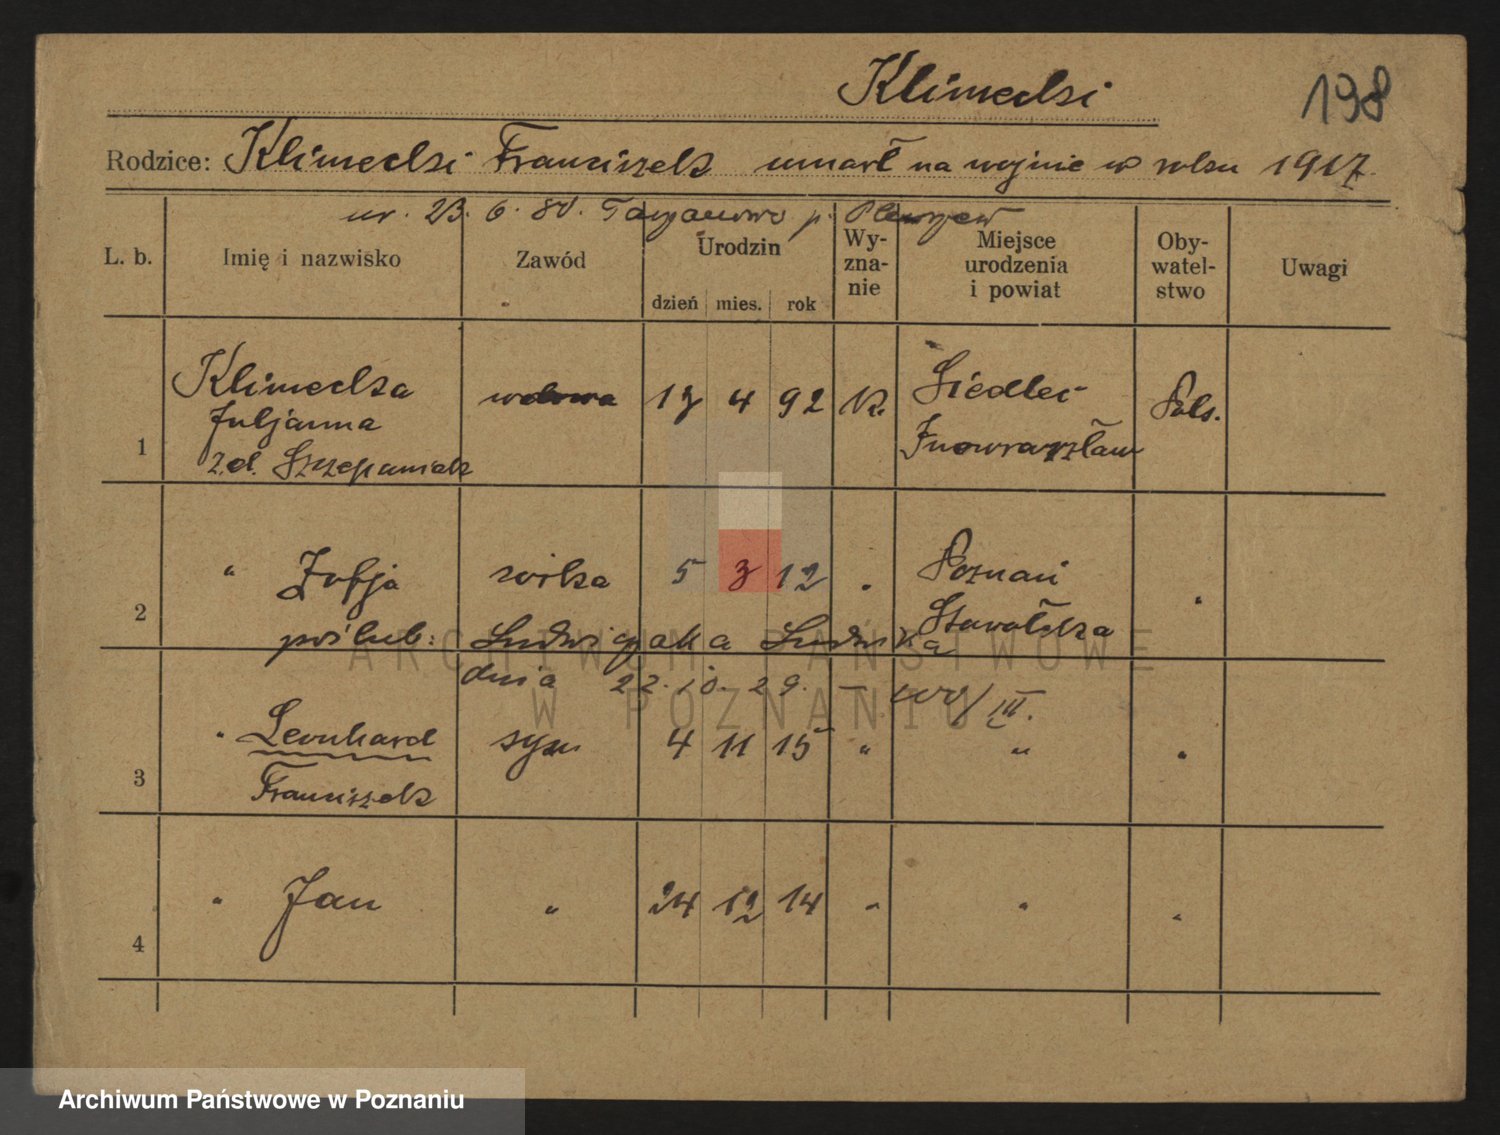 Klimecki
198
Rodzice: Klimecki Franciszek umarł na wojnie w roku 1917
ur. 23. 6. 80. p. Pleszew
L. b. Imię i nazwisko Zawód Urodzin dzień mies. rok Wy-zna-nie Miejsce urodzenia i powiat Oby-watel-stwo Uwagi
1 Klimecka wdowa 17 4 92 K. Siedlec Pols.
Juljanna Inowrocław
z.d. Szczepaniak
2 " Zofja córka 5 3 12 " Poznań "
poślub: Ludwiczaka Ludwika
dnia 22. 10. 29. – III.
3 " Leonhard syn 4 11 15 " " "
Franciszek
4 " Jan " 24 12 14 " " "
ARCHIWUM PAŃSTWOWE
W POZNANIU
Archiwum Państwowe w Poznaniu